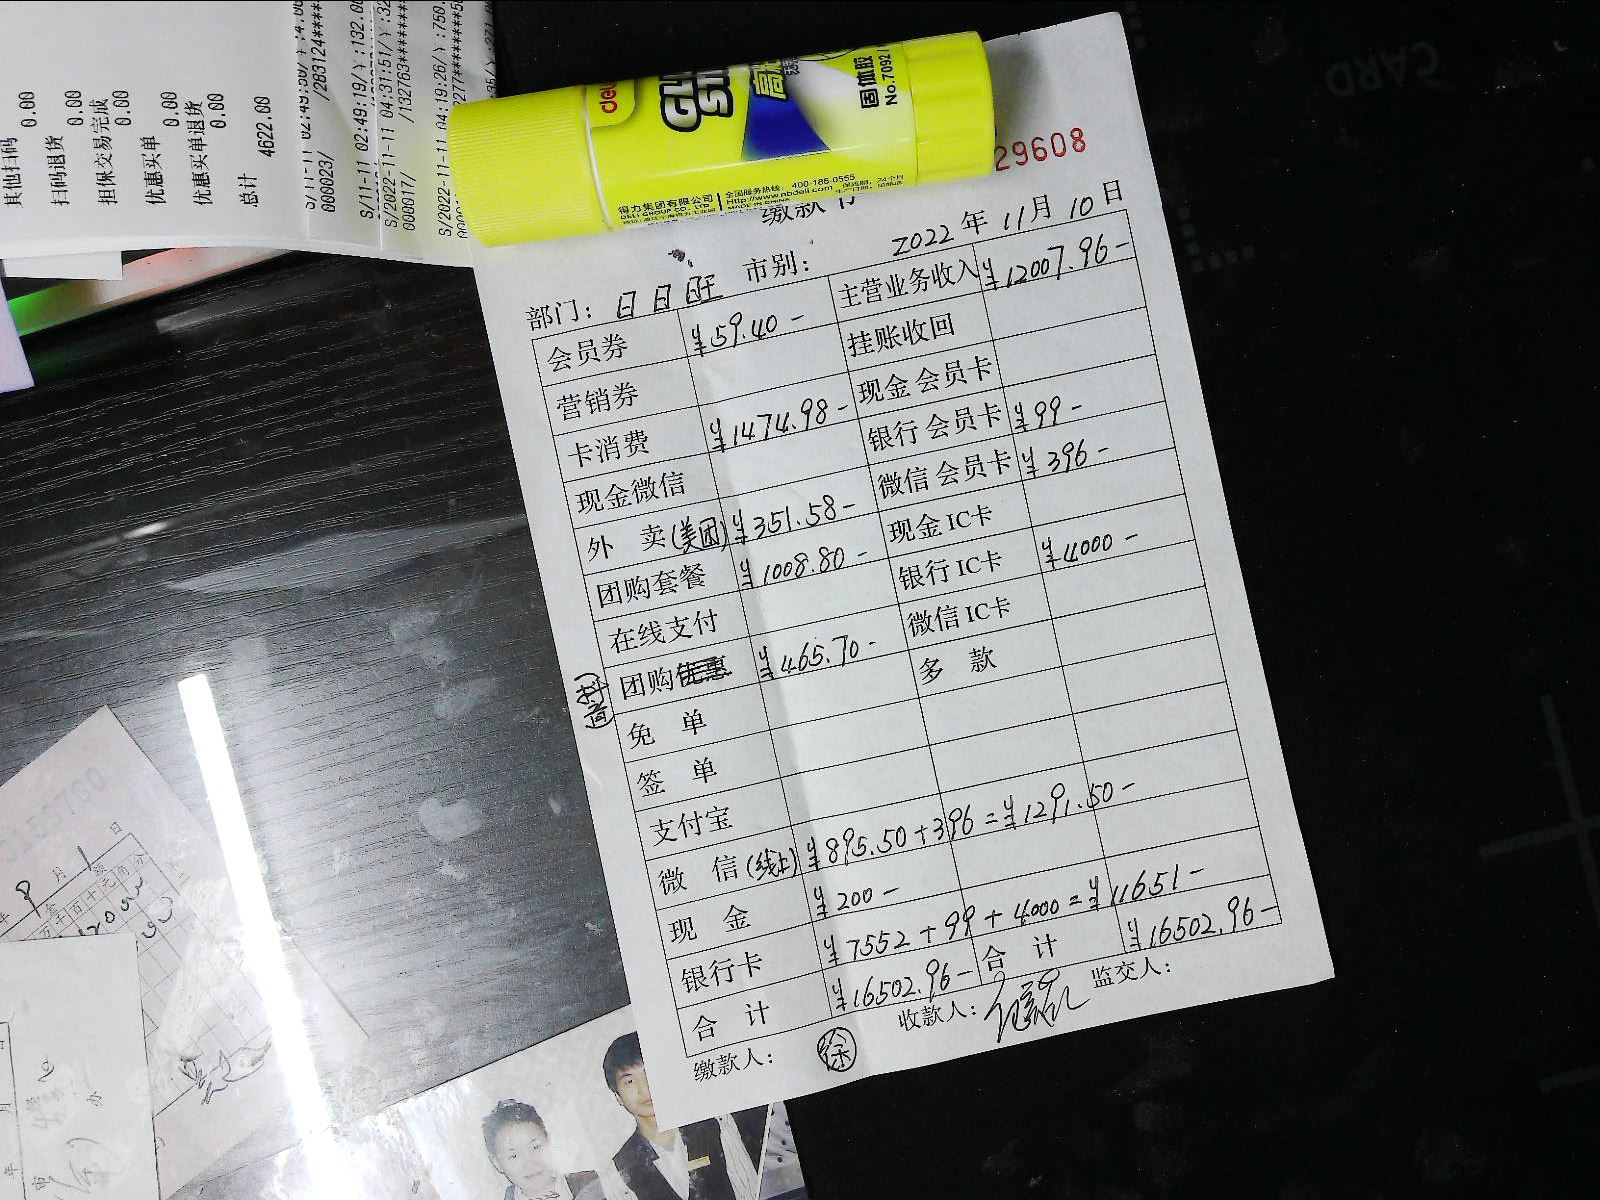 其他扫码 0.00
扫码退货 0.00
担保交易完成 0.00
优惠买单 0.00
优惠买单退货 0.00
总计 4622.00
000023/ /283124****
S/11-11 02:49:19/Y:132.0
S/2022-11-11 04:31:51/Y:32
000017/ /132763*******
S/2022-11-11 04:19:26/Y:750.
deli
固体胶
No.7092
得力集团有限公司
DELI GROUP CO., LTD
全国服务热线: 400-185-0555
Http://www.nbdeli.com
MADE IN CHINA
29608
缴款
2022 年 11 月 10 日
部门: 日日旺 市别:
会员券 ¥59.40- 主营业务收入 ¥12007.96-
营销券 挂账收回
卡消费 ¥1474.98- 现金会员卡
现金微信 银行会员卡 ¥99-
外 卖(美团) ¥351.58- 微信会员卡 ¥396-
团购套餐 ¥1008.80- 现金IC卡
在线支付 银行IC卡 ¥4000-
团购优惠 (抖音) ¥465.70- 微信IC卡
免 单 多 款
签 单
支付宝
微 信(线上) ¥895.50+396=¥1291.50-
现 金 ¥200-
银行卡 ¥7552+99+4000=¥11651-
合 计 ¥16502.96- 合 计 ¥16502.96-
缴款人: 徐 收款人: 监交人:
CARD